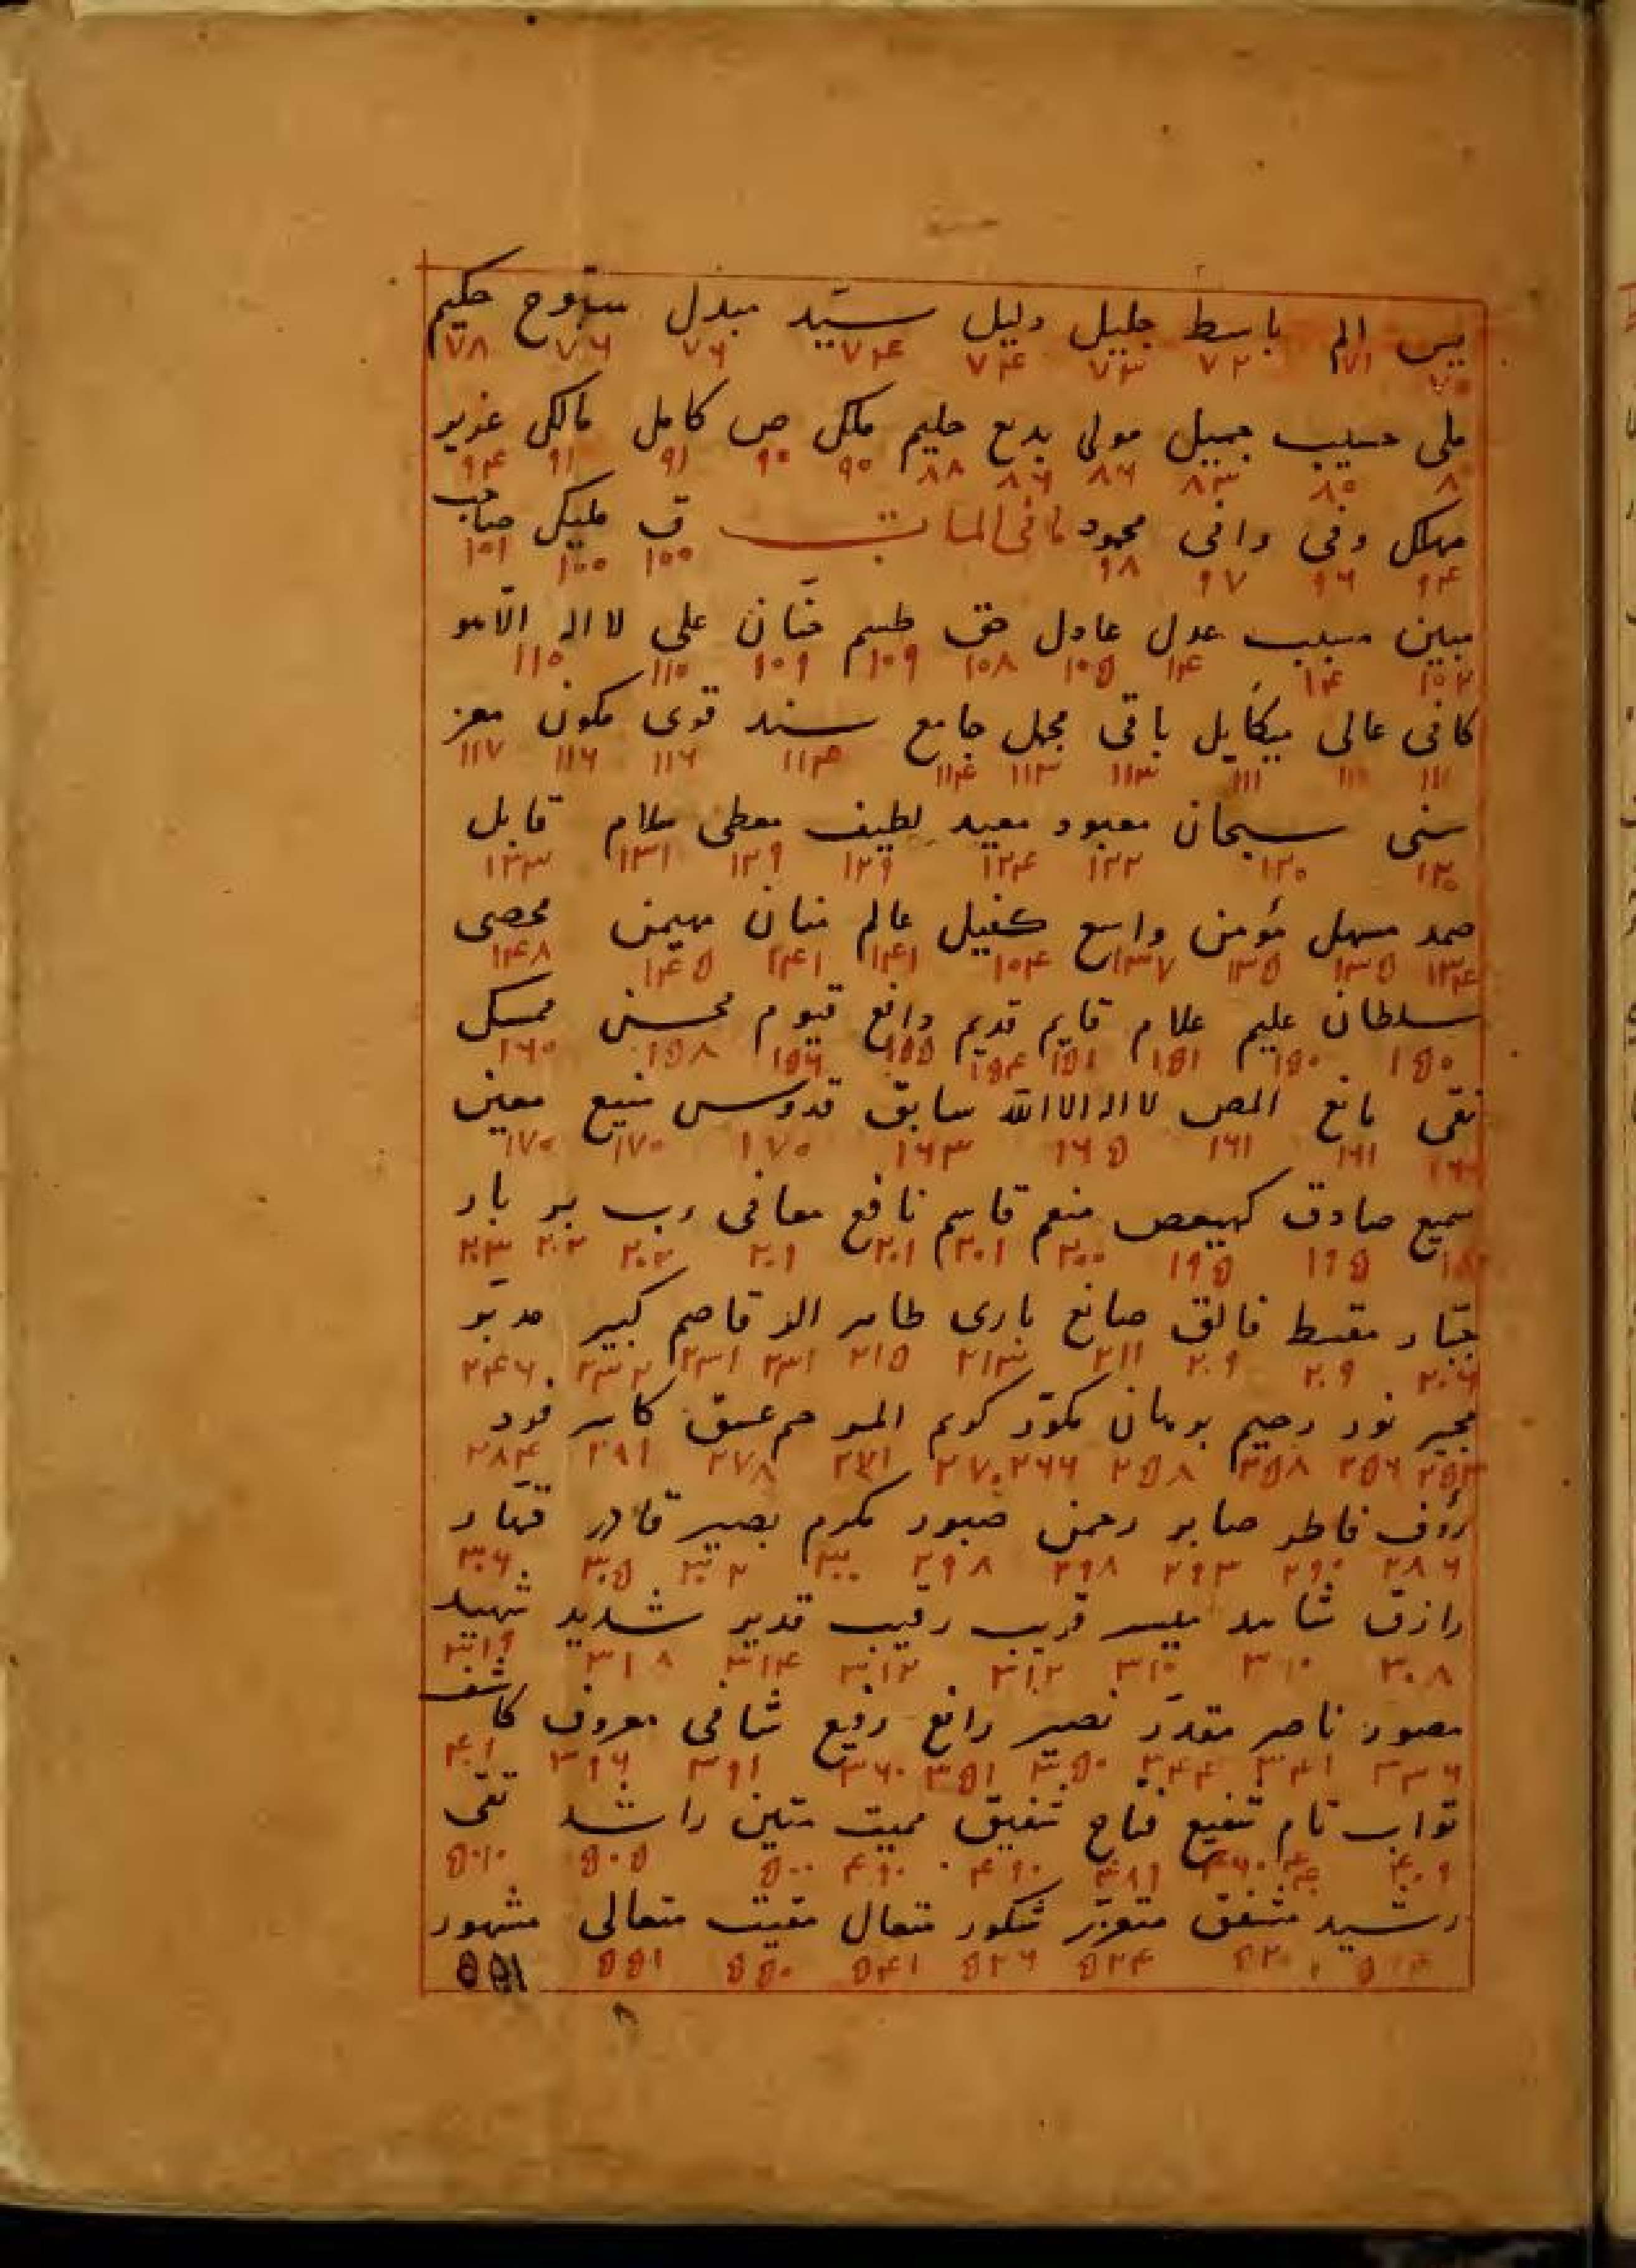 يس الم باسط جليل دليل سيّد مبدل سبّوح حكيم
٧٠ ٧١ ٧٢ ٧٣ ٧۴ ٧۴ ٧٦ ٧٦ ٧٨
ملى حسيب جميل مولى بديع حليم ملك ص كامل مالك عزيز
٨٠ ٨٣ ٨٦ ٨٦ ٨٨ ٩٠ ٩٠ ٩١ ٩١ ٩۴
مهلك وفى وافى محمود مافى المات ق مليك صاحب
٩۴ ٩٦ ٩٧ ٩٨ ١٠٠ ١٠٠ ١٠١
مبين مسبب عدل عادل حق طسم حنّان على لا اله الّا هو
١٠٢ ١٠۴ ١٠۴ ١٠۵ ١٠٨ ١٠٩ ١٠٩ ١١٠ ١١٠
كافى عالى ميكايل باقى مجمل جامع سند قوى مكون معز
١١١ ١١١ ١١١ ١١٣ ١١٣ ١١۴ ١١۴ ١١٦ ١١٦ ١١٧
سنى سبحان معبود معيد لطيف معطى سلام قابل
١٢٠ ١٢٠ ١٢٢ ١٢۴ ١٢٩ ١٢٩ ١٣١ ١٣٣
صمد مسهل مؤمن واسع كفيل عالم منان مهيمن محصى
١٣۴ ١٣۵ ١٣۵ ١٣٧ ١٠۴ ١۴١ ١۴١ ١۴۵ ١۴٨
سلطان عليم علام قايم قديم دافع قيوم محسن ممسك
١۵٠ ١۵٠ ١۵١ ١۵١ ١۵۴ ١۵۵ ١۵٦ ١۵٨ ١٦٠
نقى مانع المص لا اله الا الله سابق قدوس منيع معين
١٦٠ ١٦١ ١٦١ ١٦۵ ١٦٣ ١٧٠ ١٧٠ ١٧٠
سميع صادق كهيعص منعم قاسم نافع معافى رب بر بار
١٨٠ ١٩۵ ١٩۵ ٢٠٠ ٢٠١ ٢٠١ ٢٠١ ٢٠٢ ٢٠٢ ٢٠٣
جبّار مقسط فالق صانع بارى طاهر الر قاصم كبير مدبّر
٢٠٦ ٢٠٩ ٢٠٩ ٢١١ ٢١٣ ٢١۵ ٢٣١ ٢٣١ ٢٣٢ ٢۴٦
مجير نور رحيم برهان مكوّر كريم المر حم عسق كاسر فرد
٢۵٣ ٢۵٦ ٢۵٨ ٢۵٨ ٢٦٦ ٢٧٠ ٢٧١ ٢٧٨ ٢٨١ ٢٨۴
رؤف فاطر صابر رحمن صبور مكرم بصير قادر قهّار
٢٨٦ ٢٩٠ ٢٩٣ ٢٩٨ ٢٩٨ ٣٠٠ ٣٠٢ ٣٠۵ ٣٠٦
رازق شاهد ميسر قريب رقيب قدير شديد شهيد
٣٠٨ ٣١٠ ٣١٠ ٣١٢ ٣١٢ ٣١۴ ٣١٨ ٣١٩
مصور ناصر مقدّر نصير رافع رفيع شافى معروف كاشف
٣٣٦ ٣۴١ ٣۴۴ ٣۵٠ ٣۵١ ٣٦٠ ٣٩١ ٣٩٦ ۴٠١
تواب تام شفيع فتاح شفيق مميت متين راشد تقى
۴٠٩ ۴٦٠ ۴٨٩ ۴٩٠ ۴٩٠ ۵٠٠ ۵٠۵ ۵١٠
رشيد مشفق متعزّز شكور متعال مقيت متعالى مشهور
۵١۴ ۵٢٠ ۵٢۴ ۵٢٦ ۵۴١ ۵۵٠ ۵۵١ ۵۵١